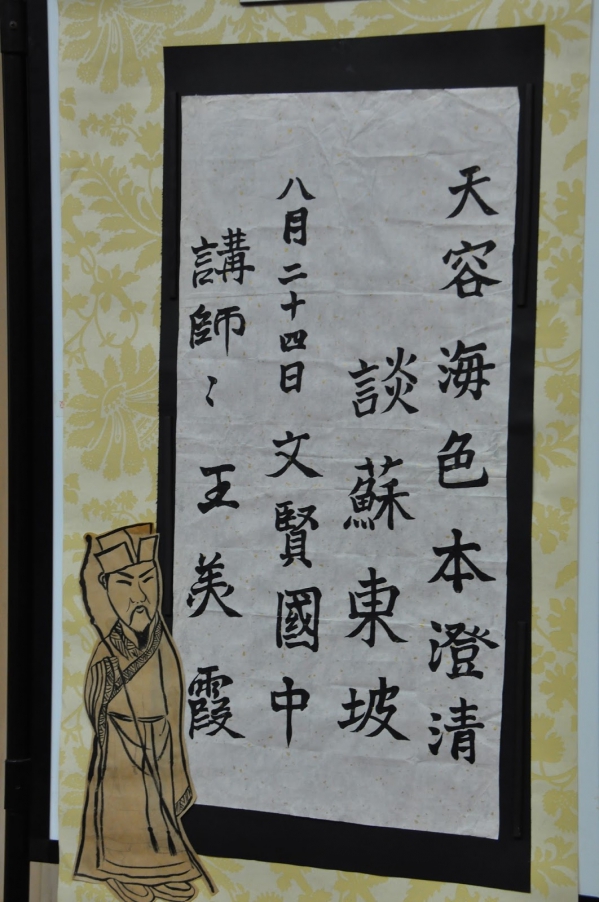 天容海色本澄清
談蘇東坡
八月二十四日 文賢國中
講師：王美霞